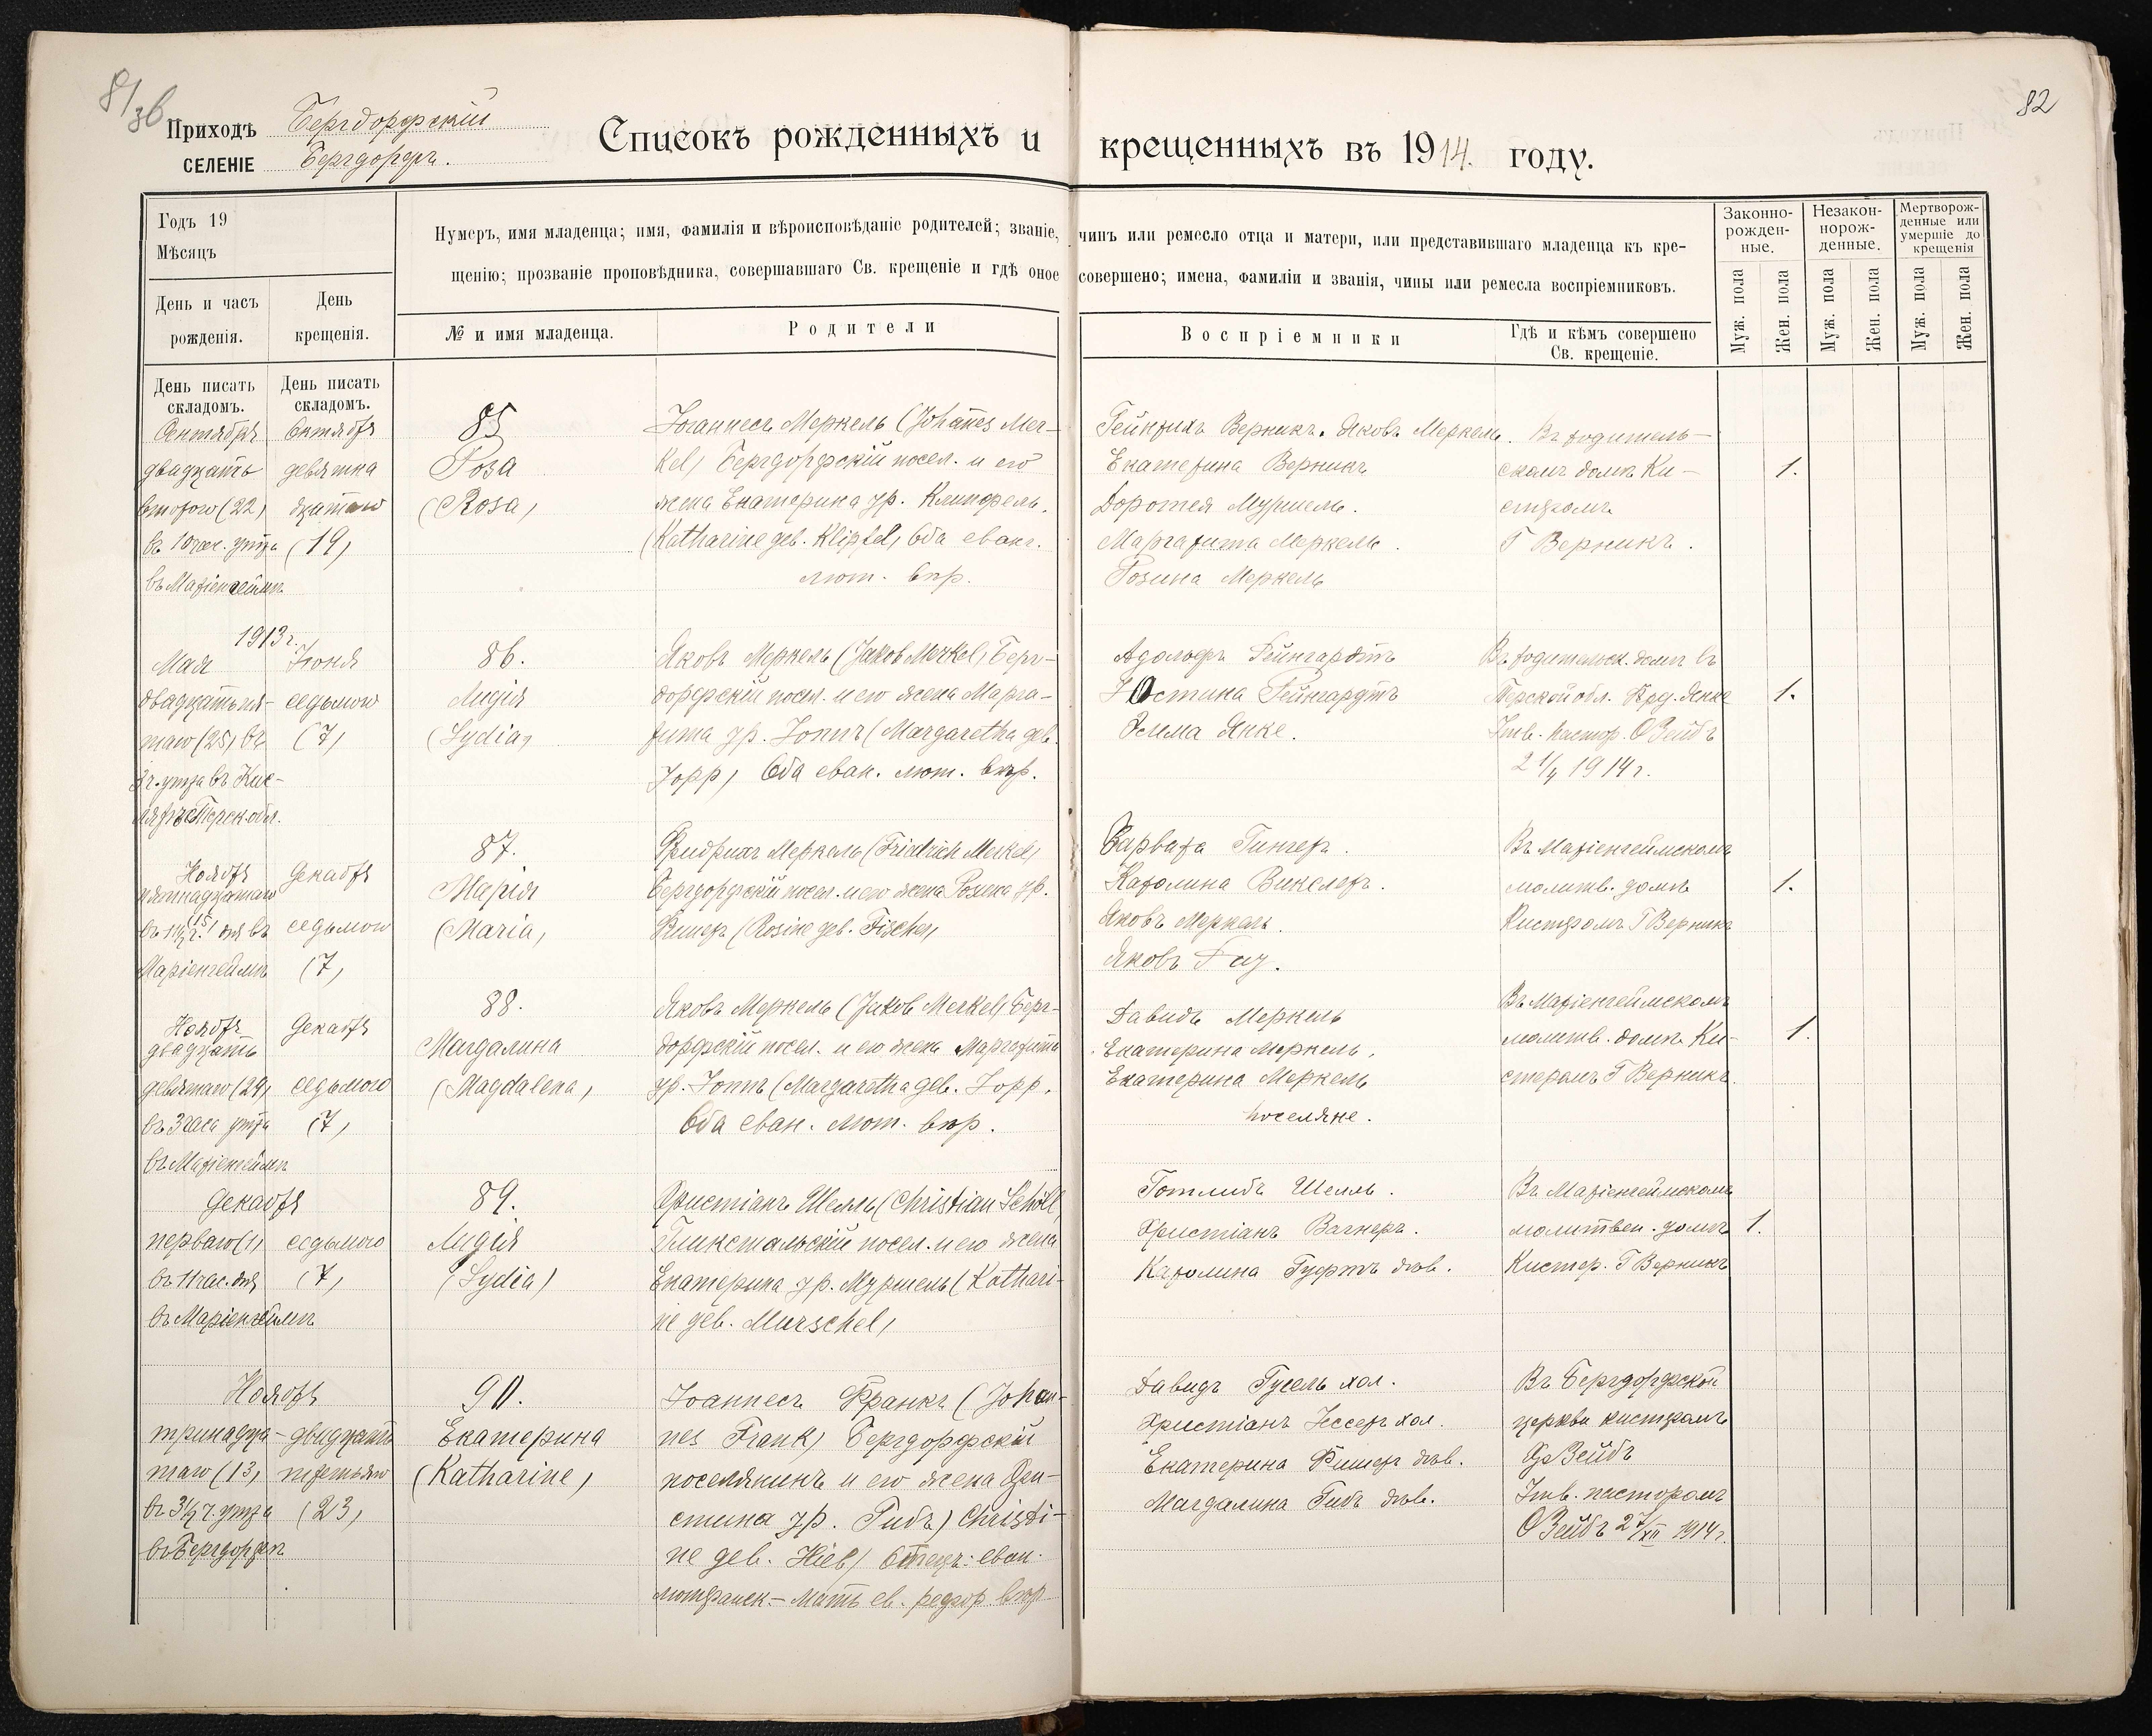 81 зв
82
Приходъ Бергдорфскій
СЕЛЕНІЕ Бергдорфъ.
Списокъ рожденныхъ и крещенныхъ въ 1914. году.
Годъ 19
Мѣсяцъ
День и часъ рожденія.
День крещенія.
Нумеръ, имя младенца; имя, фамилія и вѣроисповѣданіе родителей; званіе, чинъ или ремесло отца и матери, или представившаго младенца къ кре-
щенію; прозваніе проповѣдника, совершавшаго Св. крещеніе и гдѣ оное совершено; имена, фамиліи и званія, чины или ремесла воспріемниковъ.
№ и имя младенца.
Родители
Воспріемники
Гдѣ и кѣмъ совершено
Св. крещеніе.
Законно-
рожден-
ные.
Незакон-
норож-
денные.
Мертворож-
денные или
умершіе до
крещенія
Муж. пола
Жен. пола
Муж. пола
Жен. пола
Муж. пола
Жен. пола
День писать
складомъ.
День писать
складомъ.
Сентября
двадцать
второго (22)
въ 10 час. утра
въ Маріенгеймѣ
Октября
девятна
дцатаго
(19)
85
Роза
(Rosa)
Іоганнесъ Меркель (Johannes Mer-
kel) Бергдорфскій посел. и его
жена Екатерина ур. Клипфель.
(Katharine geb. Klipfel) Оба еванг.
лют. вѣр.
Гейнрихъ Верникъ. Яковъ Меркель.
Екатерина Верникъ
Доротея Муршель.
Маргарита Меркель.
Розина Меркель
Въ родитель-
скомъ домѣ Ки-
стеромъ
Г Верникъ.
1.
1913 г.
Мая
двадцать пя-
таго (25) въ
3 ч. утра въ Киз-
лярѣ Терск. обл.
Іюня
седьмого
(7)
86.
Лидія
(Lydia)
Яковъ Меркель (Jakob Merkel) Берг-
дорфскій посел. и его жена Марга-
рита ур. Іоппъ (Margaretha geb.
Jopp) Оба еван. лют. вѣр.
Адольфъ Рейнгардтъ
Юстина Рейнгардтъ
Эмма Янке.
Въ родительск. домѣ въ
Терской обл. Янке
Утв. пастор. О Зейбъ
1914 г.
1.
Ноября
пятнадцатаго
(15)
въ 11½ ч. дня въ
Маріенгеймѣ
Декабря
седьмого
(7)
87.
Марія
(Maria)
Фридрихъ Меркель (Friedrich Merkel)
Бергдорфскій посел. и его жена Розина ур.
Фишеръ (Rosine geb. Fischer)
Варвара Гингеръ.
Каролина Винклеръ.
Яковъ Меркель.
Яковъ Гау.
Въ Маріенгеймскомъ
молитв. домѣ
Кистеромъ Г Верникъ
1.
Ноября
двадцать
девятаго (29)
въ 3 часа утра
въ Маріенгеймѣ
Декабря
седьмого
(7)
88.
Магдалина
(Magdalena)
Яковъ Меркель (Jakob Merkel) Берг-
дорфскій посел. и его жена Маргарита
ур. Іоппъ (Margaretha geb. Jopp.
Оба еван. лют. вѣр.
Давидъ Меркель
Екатерина Меркель,
Екатерина Меркель
поселяне.
Въ Маріенгеймскомъ
молитв. домѣ Ки-
стеромъ Г Верникъ.
1.
Декабря
перваго (1)
въ 11 час. дня
въ Маріенгеймѣ
седьмого
(7)
89.
Лидія
(Lydia)
Христіанъ Шелль (Christian Schöll
Гликстальскій посел. и его жена
Екатерина ур. Муршель (Kathari-
ne geb. Murschel)
Готлибъ Шелль.
Христіанъ Вагнеръ.
Каролина Гуфтъ дѣв.
Въ Маріенгеймскомъ
молитвен. домѣ
Кистер. Г Верникъ
1.
Ноября
тринадца-
таго (13)
въ 3½ ч. утра
въ Бергдорфѣ
двадцать
третьяго
(23)
90.
Екатерина
(Katharine)
Іоаннесъ Франкъ (Johan-
nes Frank) Бергдорфскій
поселянинъ и его жена Хри-
стина ур. Гибъ) Christi-
ne geb. Hieb) Отецъ: еван.
лютеранск. - Мать ев. реформ. вѣр.
Давидъ Гусель хол.
Христіанъ Іессеръ хол.
Екатерина Фишеръ дѣв.
Магдалина Гибъ дѣв.
Въ Бергдорфской
церкви кистеромъ
Зейбъ
Утв. пасторомъ
О Зейбъ 27/XII 1914 г.